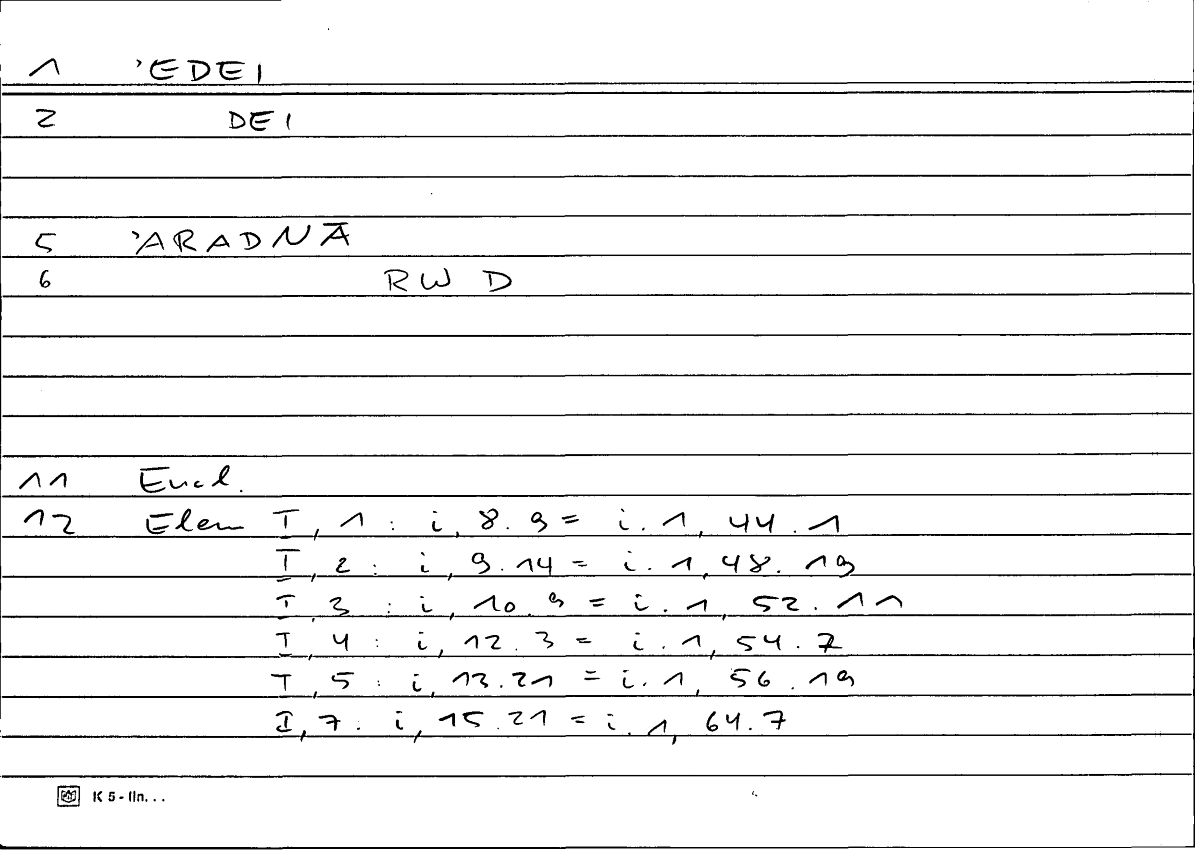 1 'EDEI
2 DEI
5 'ARADNĀ
6 RWD
11 Eucl.
12 Elem I, 1 : i, 8.9 = i.1, 44.1
I, 2 : i, 9.14 = i.1, 48.19
I, 3 : i, 10.9 = i.1, 52.11
I, 4 : i, 12.3 = i.1, 54.7
I, 5 : i, 13.21 = i.1, 56.19
I, 7 : i, 15.21 = i.1, 64.7
K 5 - lin. . .